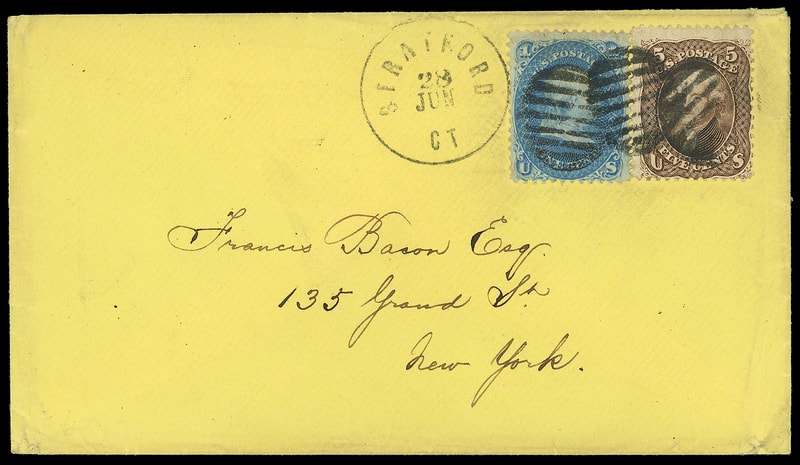 STRATFORD
28
JUN
CT
1
U.S. POSTAGE
U S
5 5
U.S. POSTAGE
FIVE CENTS
U S
Francis Bacon Esq.
135 Grand St.
New York.